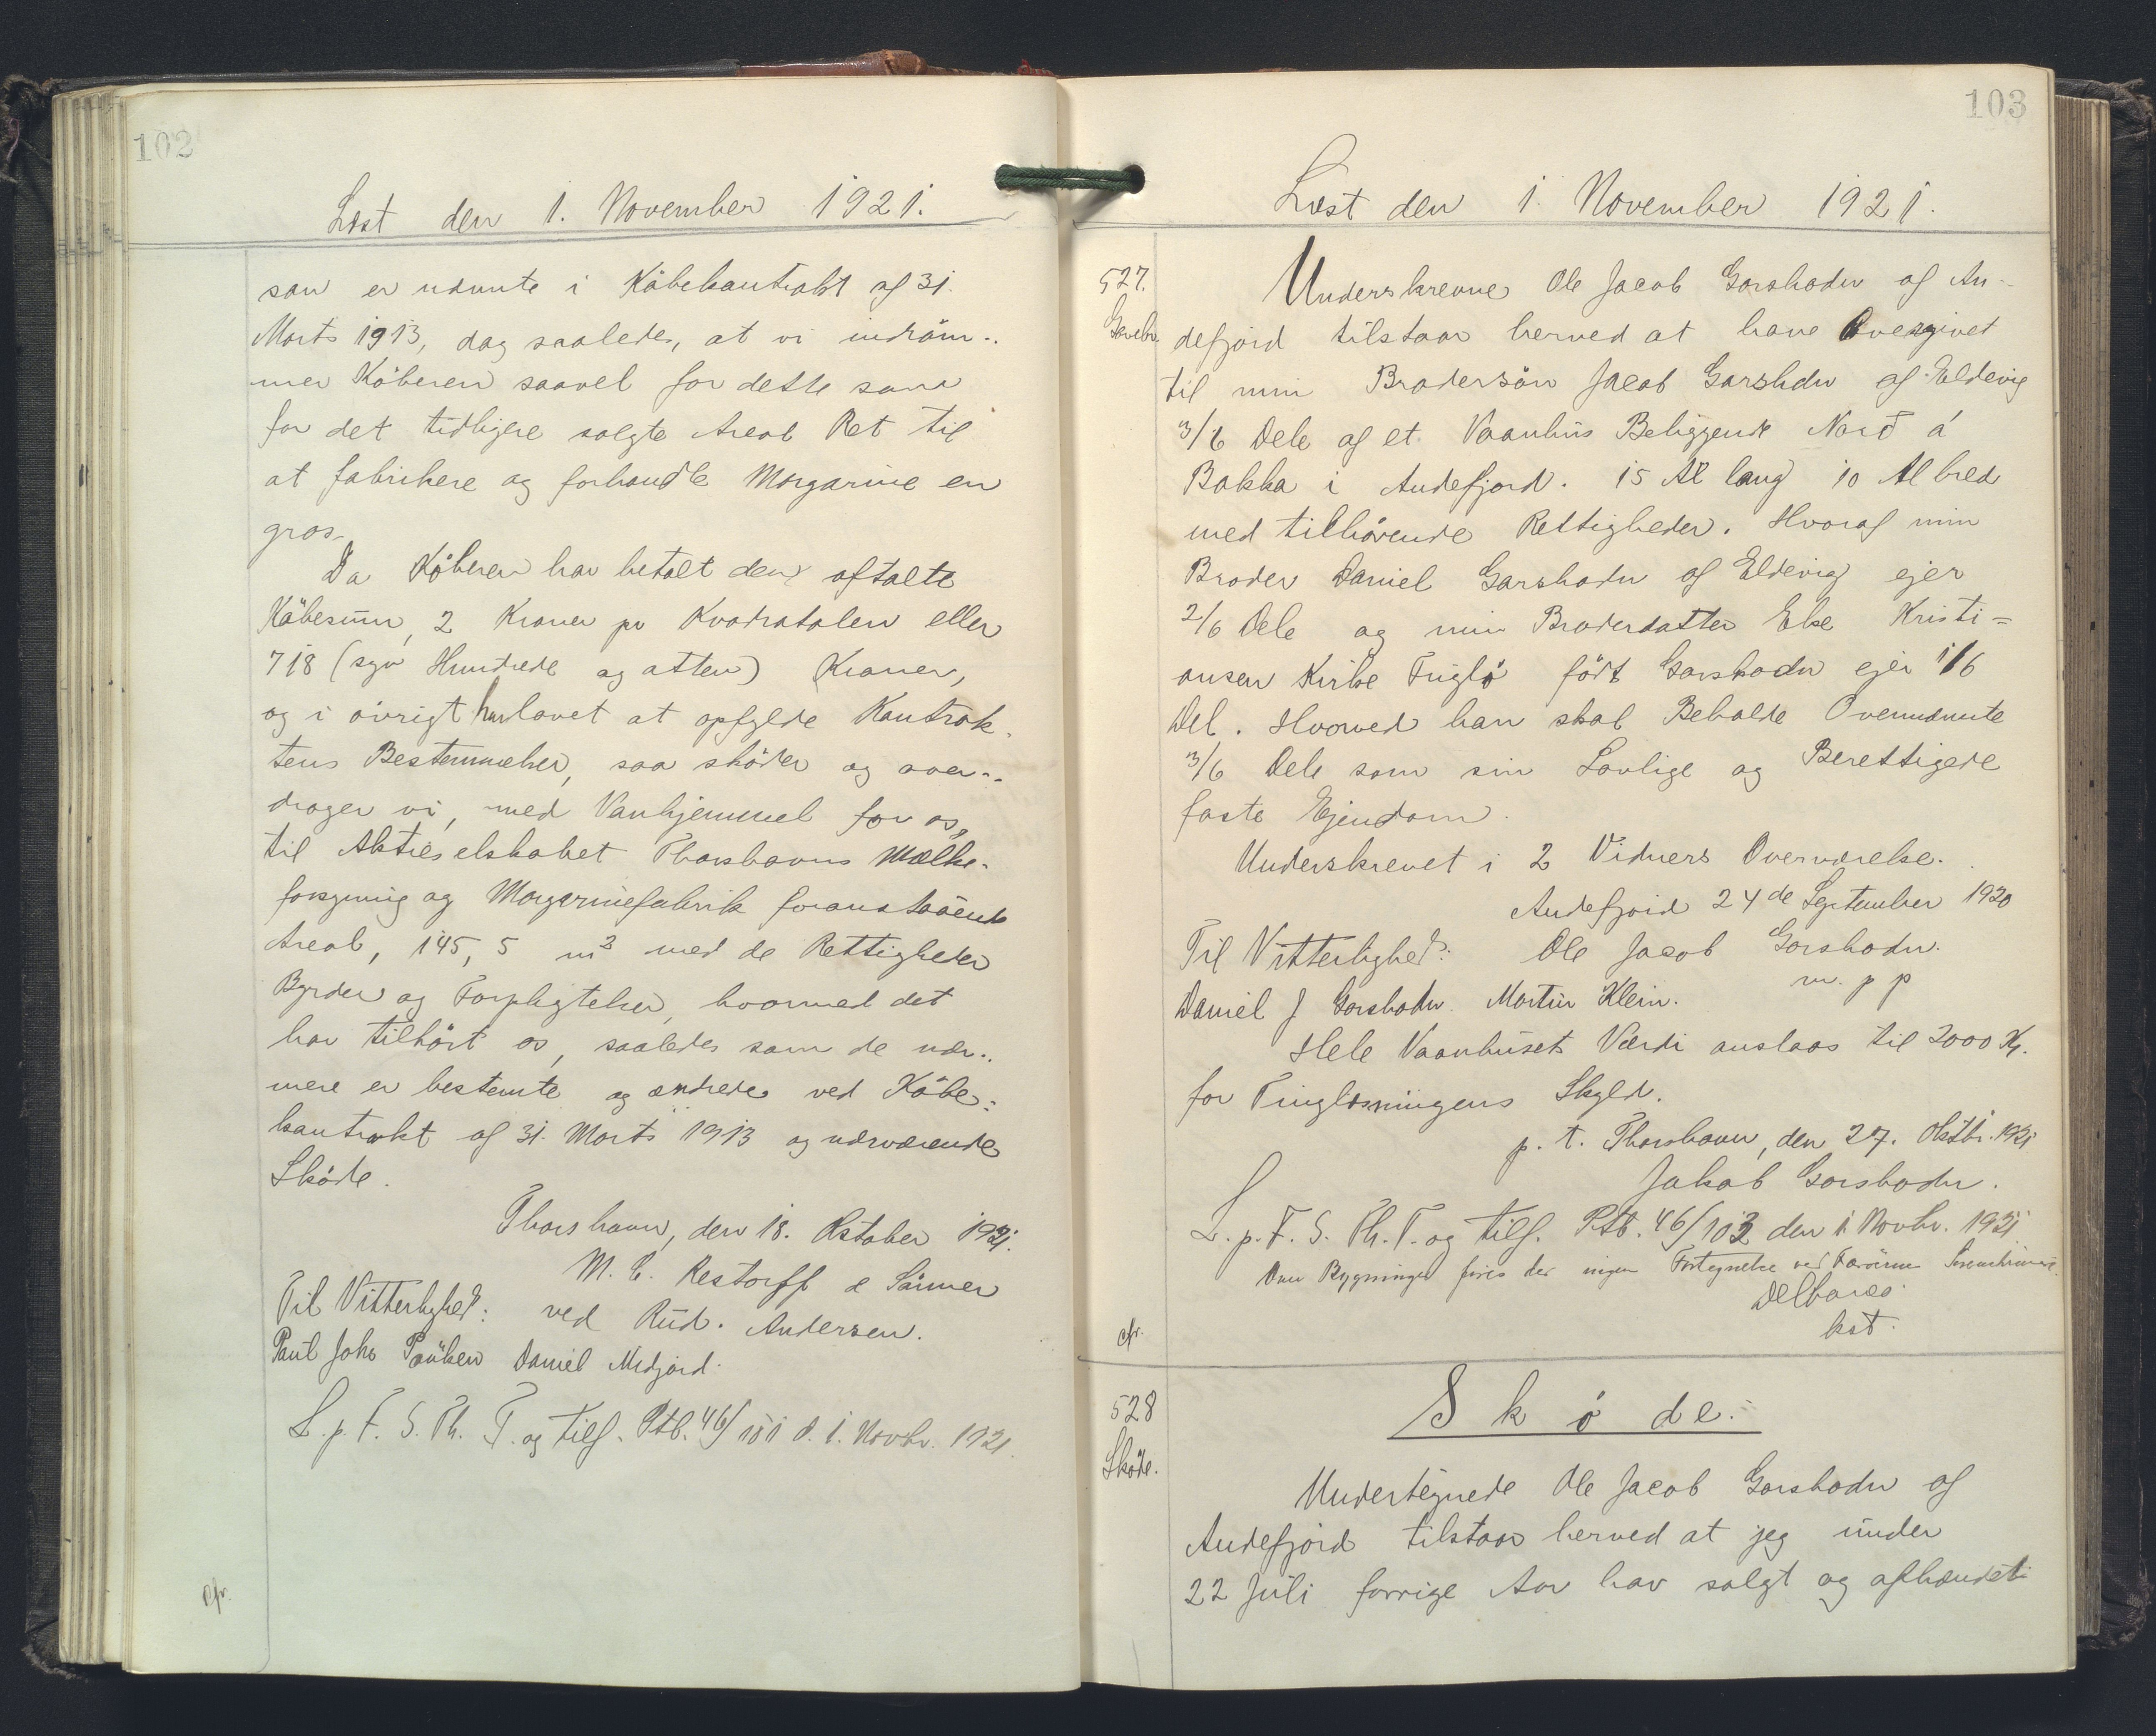 102
Læst den 1. November 1921.
som er nævnte i Köbekontrakt af 31.
Marts 1913, dog saaledes, at vi indröm-
mer Köberen saavel for dette som
for det tidligere solgte Areal Ret til
at fabrikere og forhandle Margarine en
gros.
Da Köberen har betalt den aftalte
Köbesum, 2 Kroner pr Kvadratalen eller
718 (syv Hundrede og atten) Kroner,
og i övrigt har lovet at opfylde Kontrak-
tens Bestemmelser, saa sköder og over-
drager vi, med Vanhjemmel for os,
til Aktieselskabet Thorshavns Mælke-
forsyning og Margarinefabrik foranstaaende
Areal, 145,5 m² med de Rettigheder
Byrder og Forpligtelser, hvormed det
har tilhört os, saaledes som de nær-
mere er bestemte og ændrede ved Köbe-
kontrakt af 31. Marts 1913 og nærværende
Sköde.
Thorshavn, den 18. Oktober 1921.
M. C. Restorff & Sönner
Til Vitterlighed: ved Rud. Andersen.
Paul Johs Poulsen Daniel Midjord.
L. p. F. S. Th. T. og tilf. Ptb. 46/101 d. 1. Novbr. 1921.
cfr.
103
Læst den 1. November 1921.
527.
Gavebr.
Underskrevne Ole Jacob Garshodn af An-
defjord tilstaar herved at have Overgivet
til min Brodersön Jacob Garshodn af Eldevig
3/6 Dele af et Vaanhus Beliggende Nord á
Bakka i Andefjord. 15 Al lang 10 Al bred
med tilhörende Rettigheder. Hvoraf min
Broder Daniel Garshodn af Eldevig ejer
2/6 Dele og min Broderdatter Else Kristi=
ansen Kirke Fuglö födt Garshodn ejer 1/6
Del. Hvorved han skal Beholde Ovennævnte
3/6 Dele som sin Lovlige og Berettigede
faste Ejendom.
Underskrevet i 2 Vidners Overværelse.
Andefjord 24de September 1920
Til Vitterlighed: Ole Jacob Garshodn.
m. p p
Daniel J Garshodn Martin Klein.
Hele Vaanhusets Værdi anslaas til 2000 Kr.
for Tinglæsningens Skyld.
p. t. Thorshavn, den 27. Oktbr. 1921
Jakob Garshodn.
L. p. F. S. Th. T. og tilf. Ptb. 46/103 den 1 Novbr. 1921
Over Bygninger föres der ingen Fortegnelse ved Færöerne
Delbares
kst.
cfr.
528
Sköde.
Sköde.
Undertegnede Ole Jacob Garshodn af
Andefjord tilstaar herved at jeg under
22 Juli forrige Aar har solgt og afhændet